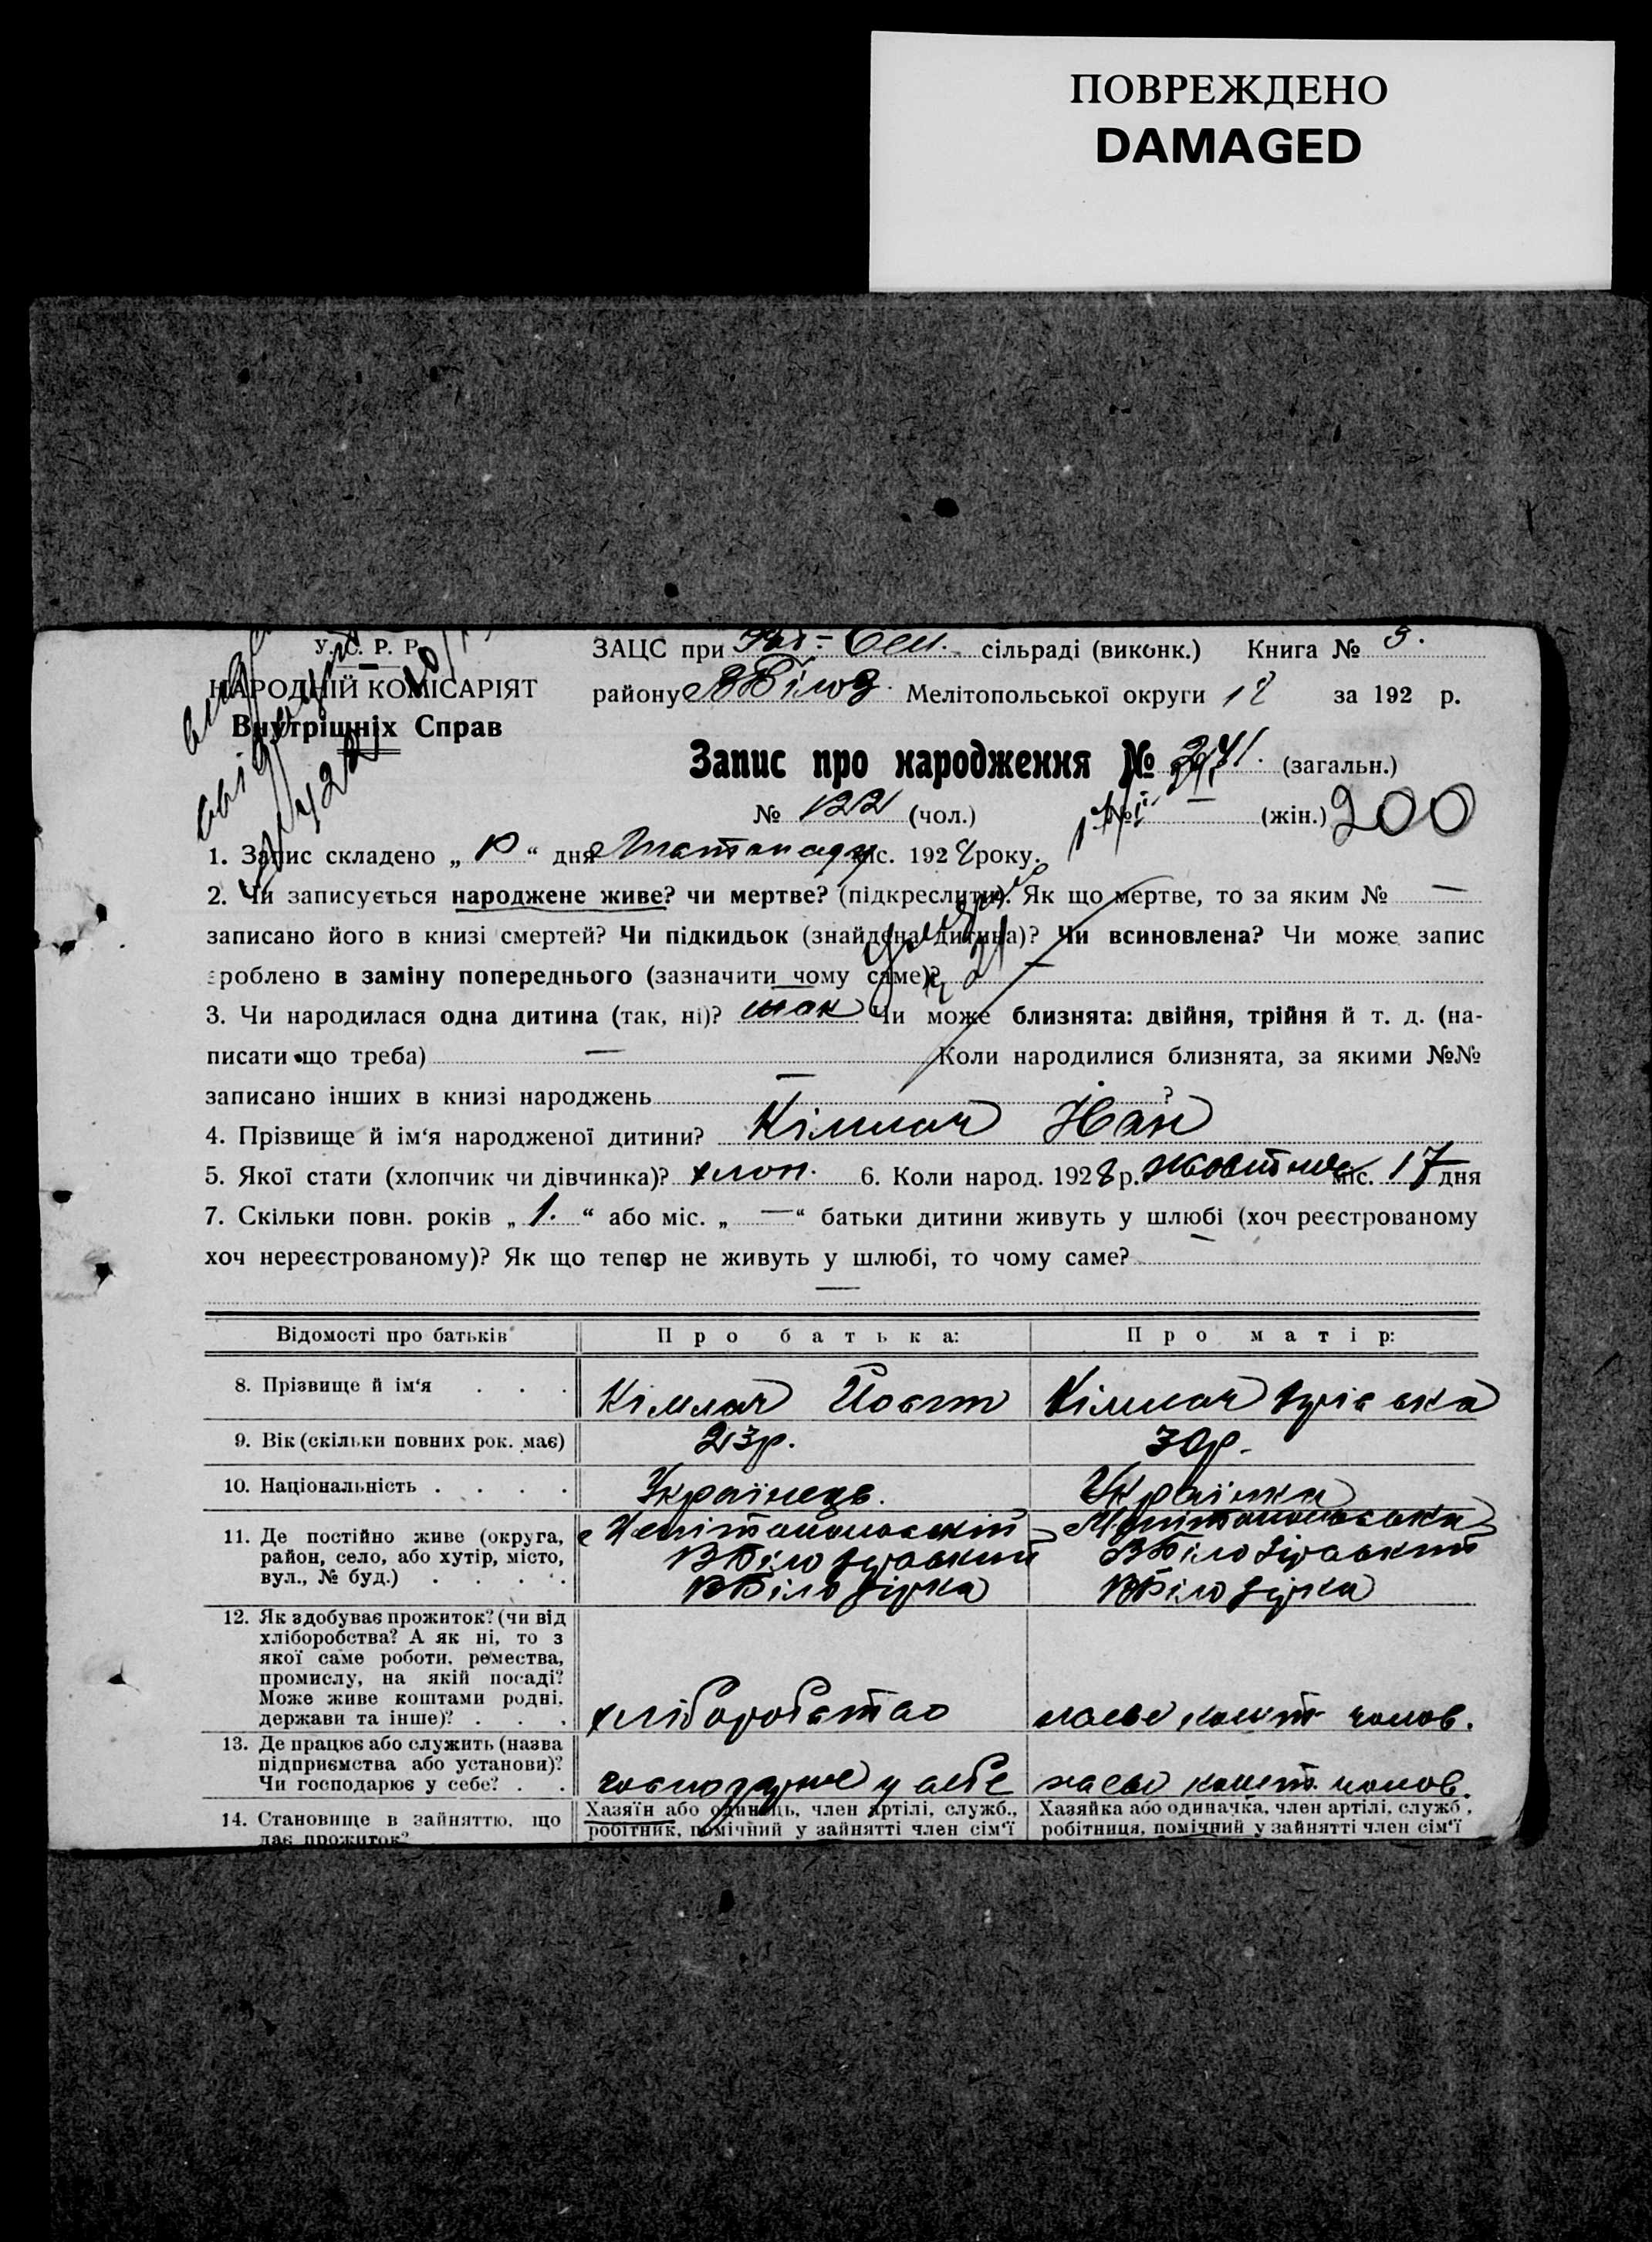 ПОВРЕЖДЕНО
DAMAGED
У. С. Р. Р.
НАРОДНІЙ КОМІСАРІЯТ
Внутрішніх Справ
ЗАЦС при сільраді (виконк.) Книга № 3.
району ВБілоз. Мелітопольської округи за 192 р.
Запис про народження № 241. (загальн.)
№ 122 (чол.) № — (жін.) 200
1. Запис складено „ “ дня Листопаду міс. 1928 року.
2. Чи записується народжене живе? чи мертве? (підкреслити). Як що мертве, то за яким № —
записано його в книзі смертей? Чи підкидьок (знайдена дитина)? Чи всиновлена? Чи може запис
зроблено в заміну попереднього (зазначити чому саме)? —
3. Чи народилася одна дитина (так, ні)? так Чи може близнята: двійня, трійня й т. д. (на-
писати що треба) — Коли народилися близнята, за якими №№
записано інших в книзі народжень — ?
4. Прізвище й ім‘я народженої дитини? Кімлач Іван
5. Якої стати (хлопчик чи дівчинка)? хлоп. 6. Коли народ. 1928 р. жовтня міс. 17 дня
7. Скільки повн. років „ 1. “ або міс. „ — “ батьки дитини живуть у шлюбі (хоч реєстрованому
хоч нереєстрованому)? Як що тепер не живуть у шлюбі, то чому саме? —
—
Відомості про батьків Про батька: Про матір:
8. Прізвище й ім‘я . . . Кімлач Йост Кімлач
9. Вік (скільки повних рок. має) 23р. 30р.
10. Національність . . . . Українець. Українка
11. Де постійно живе (округа, Мелітопольський Мелітопольська
район, село, або хутір, місто, ВБілозірський ВБілозірський
вул., № буд.) . . . . . ВБілозірка ВБілозірка
12. Як здобуває прожиток? (чи від
хліборобства? А як ні, то з
якої саме роботи, ремества,
промислу, на якій посаді?
Може живе коштами родні,
держави та інше)? . . . хліборобство на його кошт. чолов.
13. Де працює або служить (назва
підприємства або установи)?
Чи господарює у себе? . . господарює у себе кошт. чолов.
14. Становище в зайняттю, що Хазяїн або одинець, член артілі, служб., Хазяйка або одиначка, член артілі, служб.,
дає прожиток? робітник, помічний у зайнятті член сім‘ї робітниця, помічний у зайнятті член сім‘ї